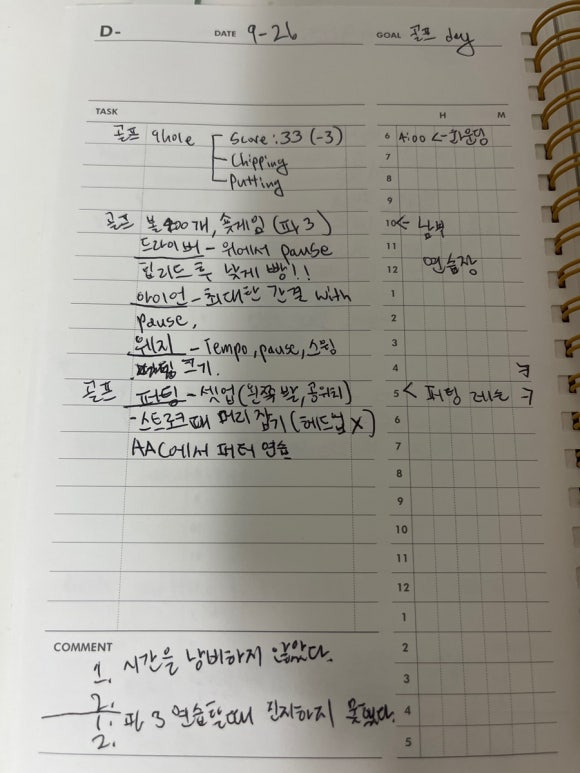 D-
DATE 9-26
GOAL 골프 day
TASK
H M
골프 9hole Score : 33 (-3)
Chipping
Putting
골프 볼 200개, 숏게임 (파3)
드라이버 - 위에서 pause
힙리드 훅 낮게 빵!!
아이언 - 최대한 간결 with
pause,
웨지 - Tempo, pause, 스윙
크기.
골프 퍼팅 - 셋업 (왼쪽 발, 공위치)
- 스트로크 때 머리 잡기 (헤드업 X)
AAC에서 퍼터 연습
6 4:00 <- 라운딩
7
8
9
10 <- 남부
11
12 연습장
1
2
3
4
5 < 퍼팅 레슨
6
7
8
9
10
11
12
1
2
3
4
5
COMMENT
1. 시간을 낭비하지 않았다.
2.
1. 파 3 연습할때 진지하지 못했다.
2.